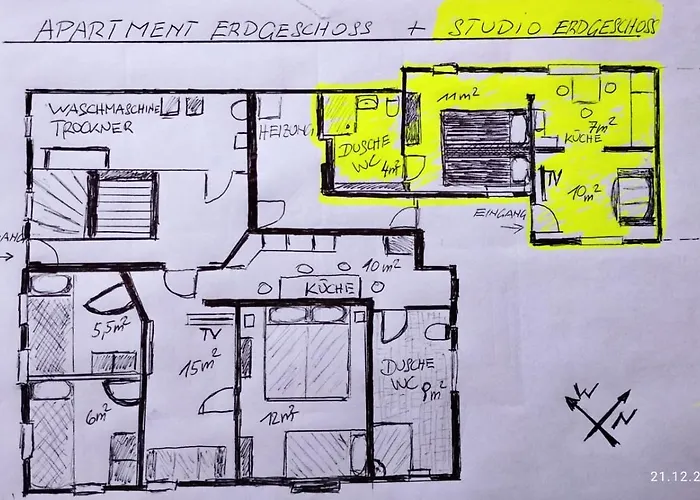 APARTMENT ERDGESCHOSS + STUDIO ERDGESCHOSS
WASCHMASCHINE
TROCKNER
HEIZUNG
DUSCHE
WC
4m²
11m²
7m²
KÜCHE
TV
10m²
EINGANG
10m²
KÜCHE
5,5m²
TV
15m²
DUSCHE
WC
9m²
6m²
12m²
N
21.12.2